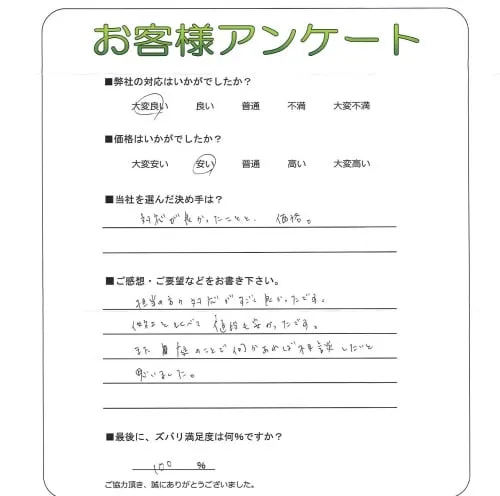 お客様アンケート
■弊社の対応はいかがでしたか？
大変良い 良い 普通 不満 大変不満
■価格はいかがでしたか？
大変安い 安い 普通 高い 大変高い
■当社を選んだ決め手は？
対応が良かったことと、価格。
■ご感想・ご要望などをお書き下さい。
担当の方の対応がすごく良かったです。
他社とくらべて値段も安かったです。
また 何かあれば相談したいと
思いました。
■最後に、ズバリ満足度は何%ですか？
100 %
ご協力頂き、誠にありがとうございました。